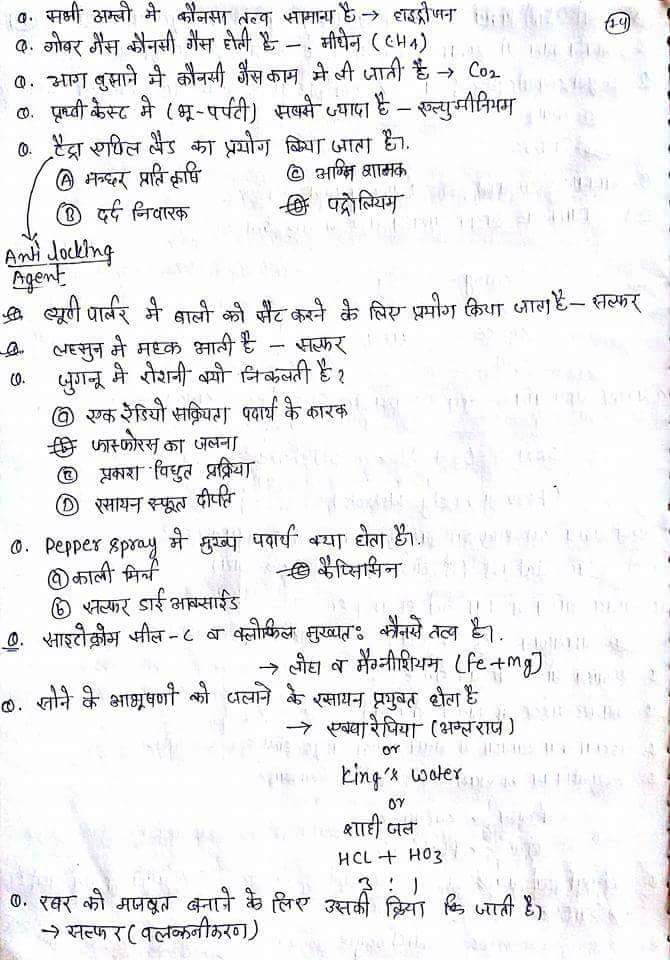 Q. सभी अम्लो मे कौनसा तत्व सामान्य है → हाइड्रोजन
14
Q. गोबर गैस कौनसी गैस होती है - मीथेन (CH4)
Q. आग बुसाने मे कौनसी गैस काम मे ली जाती है → CO2
Q. पृथ्वी केस्ट मे (भू-पर्पटी) सबसे ज्यादा है - एल्युमीनियम
Q. टैट्रा एथिल लैड का प्रयोग किया जाता है।
(A) मच्छर प्रतिकृषि (C) अग्नि शामक
(B) दर्द निवारक (D) पट्रोलियम
Anti locking
Agent
Q. ब्यूटी पार्लर मे बालो को सैट करने के लिए प्रयोग किया जाता है - सल्फर
Q. लहसुन मे महक आती है - सल्फर
Q. जुगनू मे रोशनी क्यो निकलती है?
(a) एक रेडियो सक्रियता पदार्थ के कारक
(b) फास्फोरस का जलना
(C) प्रकाश विधुत प्रक्रिया
(D) रसायन स्फूत दीपति
Q. Pepper spray मे मुख्य पदार्थ क्या होता है।
(a) काली मिर्च (C) कैप्सिसिन
(b) सल्फर डाई आक्साईड
Q. साइटोक्रोम सील - C व क्लोरोफिल मुख्यतः कौनसे तत्व है।
→ लोहा व मैग्नीशियम (Fe+Mg)
Q. सोने के आभूषणो को जलाने के रसायन प्रयुक्त होता है
→ एक्वा रेपिया (अम्लराज)
or
King's Water
or
शाही जल
HCL + HO3
3 : 1
Q. रबर को मजबूत बनाने के लिए उसकी क्रिया कि जाती है।
→ सल्फर (वलकनीकरण)